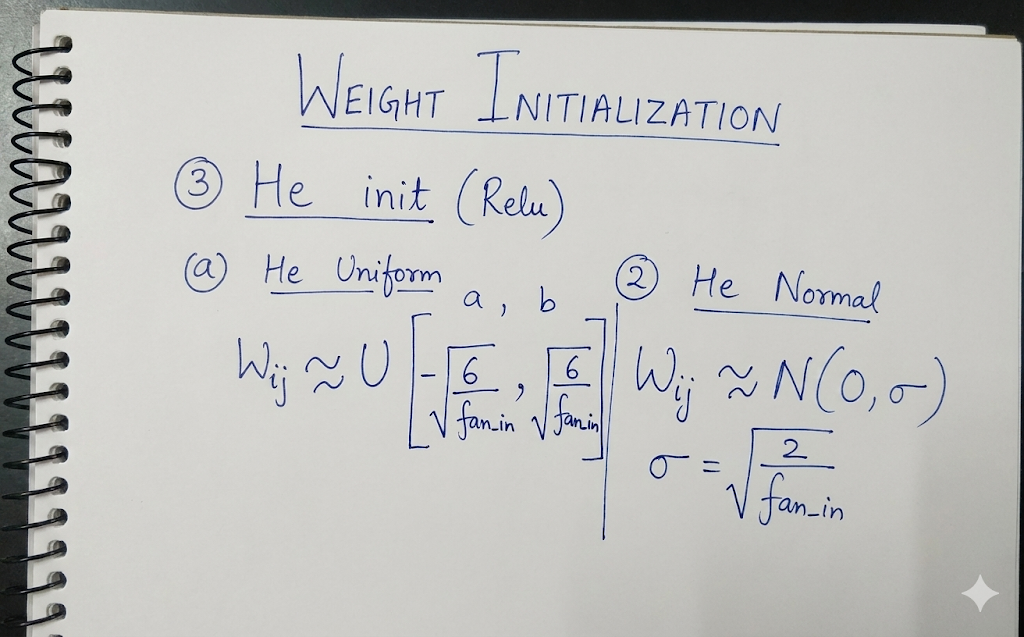 WEIGHT INITIALIZATION
③ He init (Relu)
(a) He Uniform
a, b
Wij ≈ U [-√(6/fan_in), √(6/fan_in)]
② He Normal
Wij ≈ N(0, σ)
σ = √(2/fan_in)